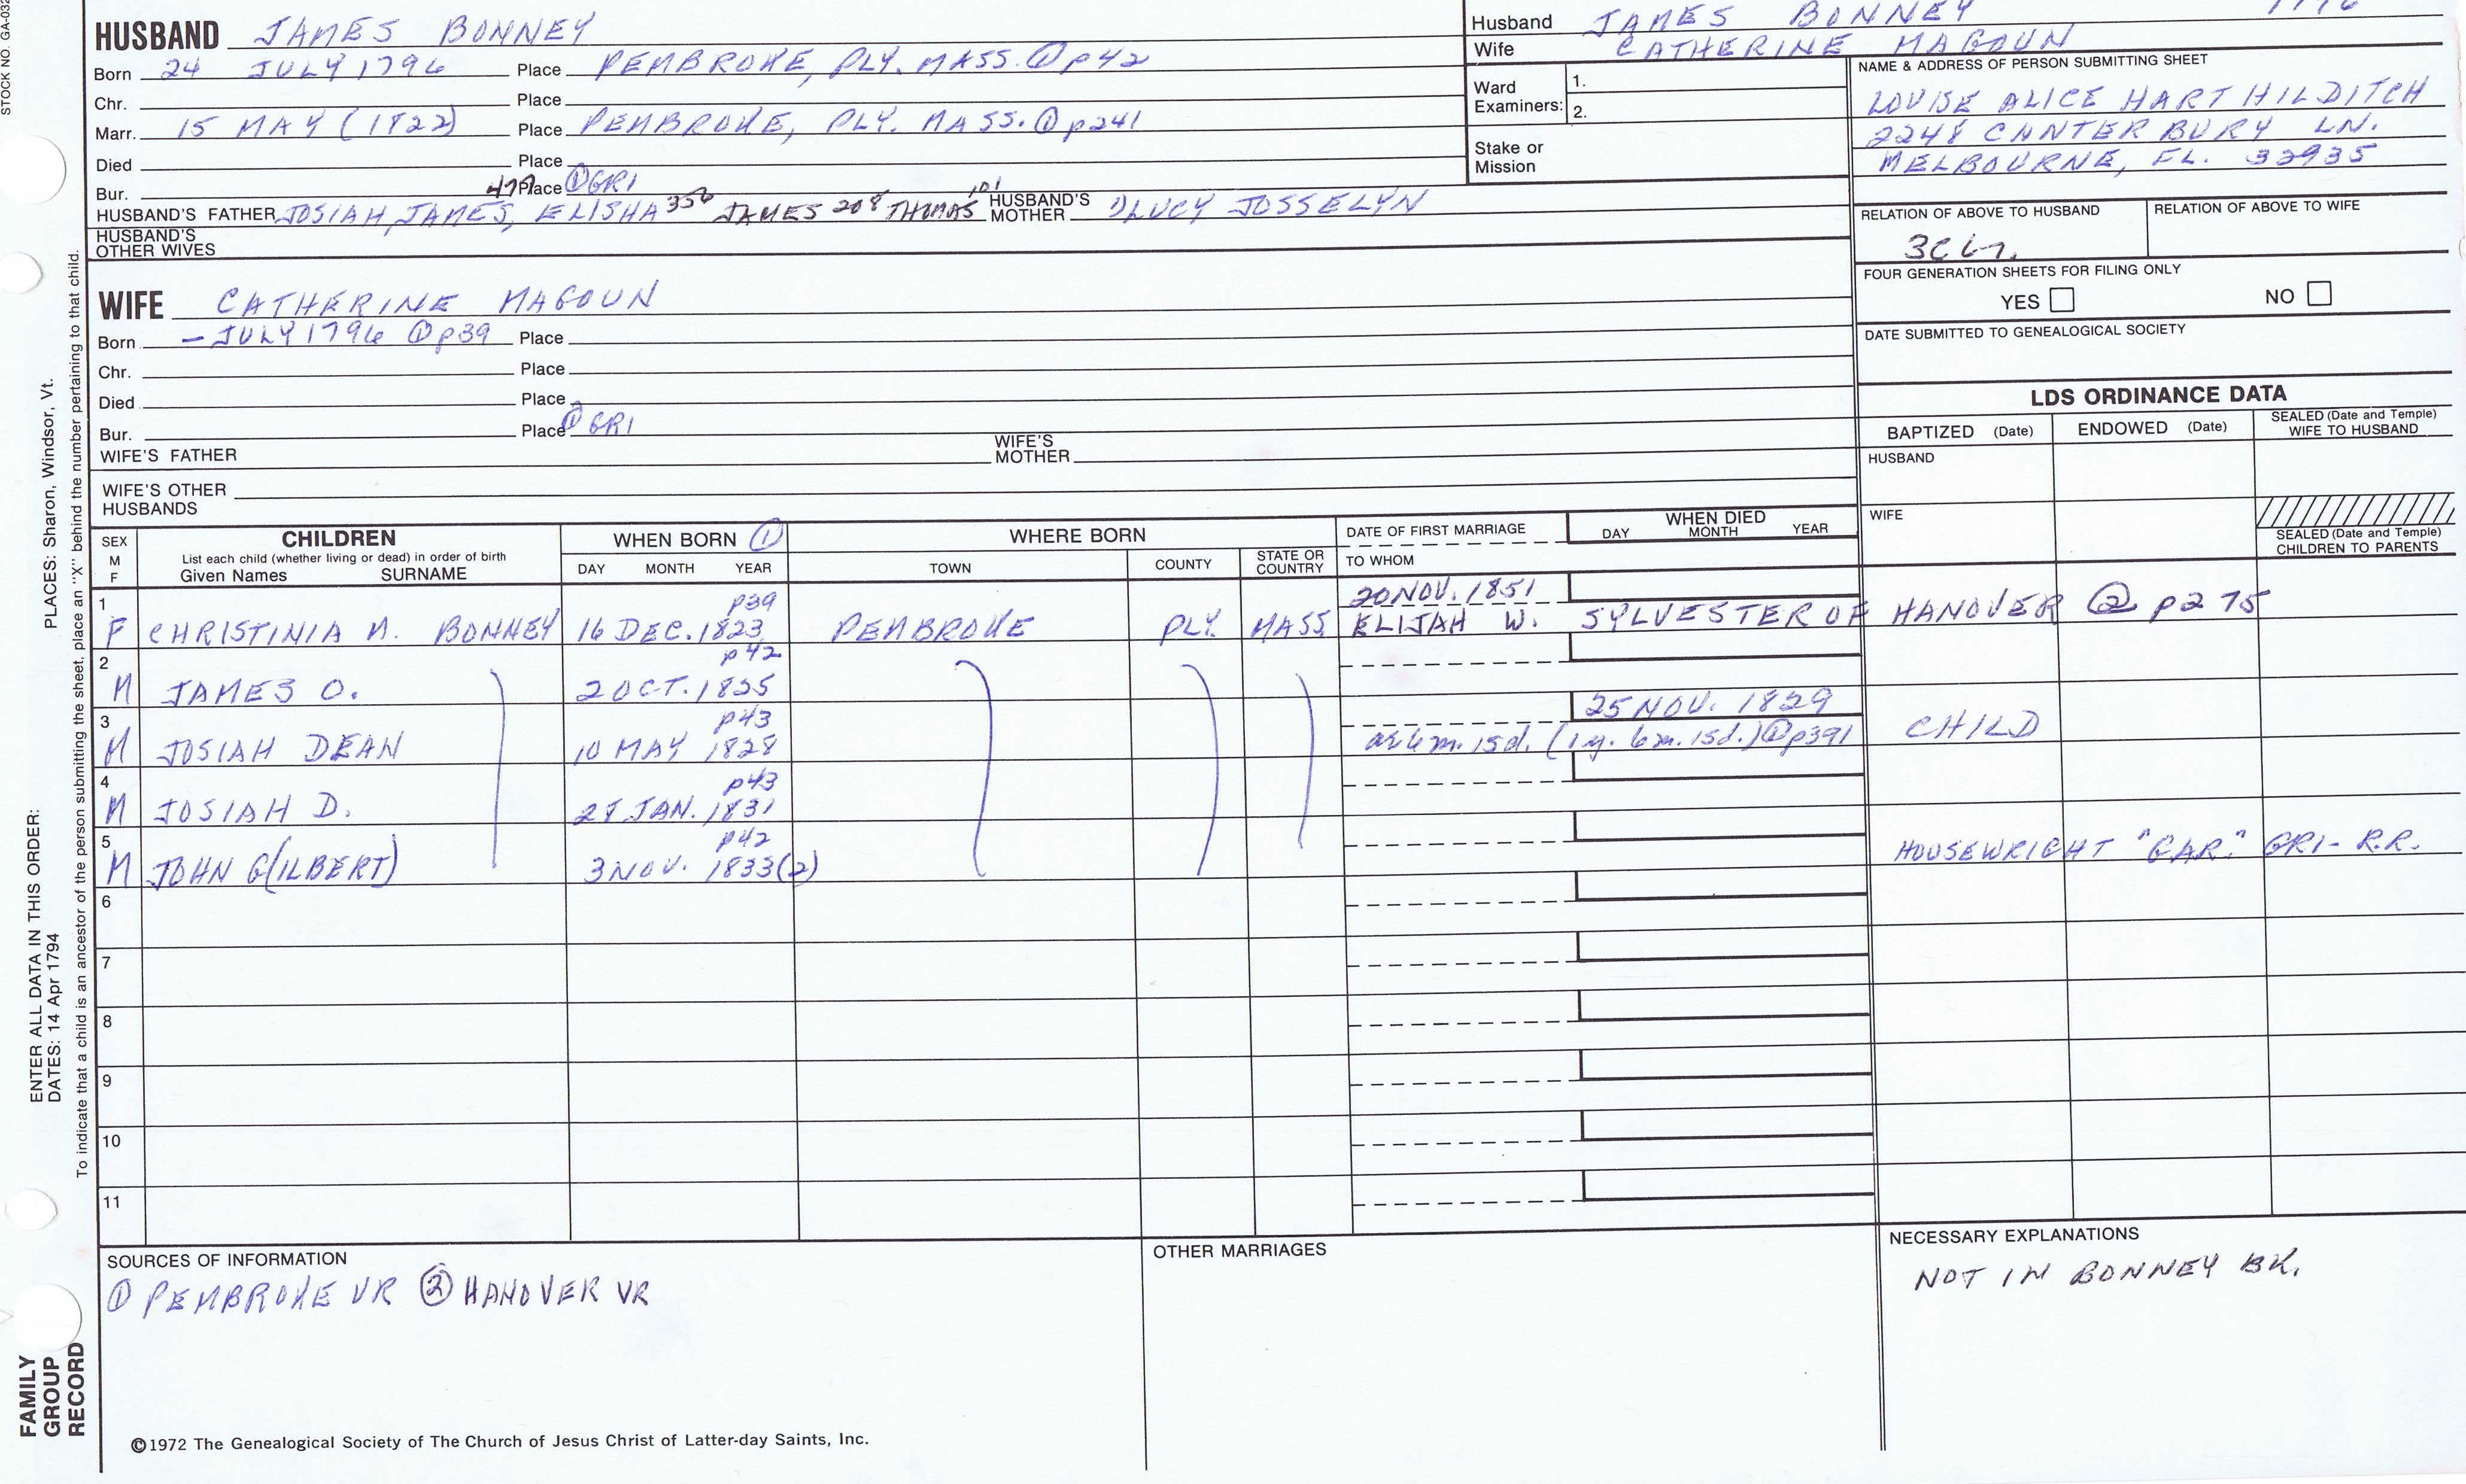 STOCK NO. GA-032
HUSBAND JAMES BONNEY
Born 24 JULY 1796 Place PEMBROKE, PLY. MASS. ① p42
Chr. Place
Marr. 15 MAY (1822) Place PEMBROKE, PLY. MASS. ① p241
Died Place
Bur. Place ① GRI
HUSBAND'S FATHER JOSIAH, JAMES, ELISHA 356 JAMES 208 THOMAS 101 HUSBAND'S MOTHER LUCY JOSSELYN
HUSBAND'S OTHER WIVES
Husband JAMES BONNEY 1796
Wife CATHERINE MAGOUN
Ward Examiners: 1.
2.
Stake or Mission
NAME & ADDRESS OF PERSON SUBMITTING SHEET
LOUISE ALICE HART HILDITCH
2248 CANTERBURY LN.
MELBOURNE, FL. 32935
RELATION OF ABOVE TO HUSBAND RELATION OF ABOVE TO WIFE
FOUR GENERATION SHEETS FOR FILING ONLY
YES NO
DATE SUBMITTED TO GENEALOGICAL SOCIETY
WIFE CATHERINE MAGOUN
Born – JULY 1796 ① p39 Place
Chr. Place
Died Place
Bur. Place ① GRI
WIFE'S FATHER WIFE'S MOTHER
WIFE'S OTHER HUSBANDS
LDS ORDINANCE DATA
BAPTIZED (Date) ENDOWED (Date) SEALED (Date and Temple) WIFE TO HUSBAND
HUSBAND
WIFE
SEALED (Date and Temple) CHILDREN TO PARENTS
SEX M F CHILDREN List each child (whether living or dead) in order of birth Given Names SURNAME
WHEN BORN ① DAY MONTH YEAR
WHERE BORN TOWN COUNTY STATE OR COUNTRY
DATE OF FIRST MARRIAGE TO WHOM
WHEN DIED DAY MONTH YEAR
1 p39 20 NOV. 1851
F CHRISTINIA M. BONNEY 16 DEC. 1823 PEMBROKE PLY. MASS ELIJAH W. SYLVESTER OF HANOVER ② p275
2 p42
M JAMES O. 2 OCT. 1825
3 p43 25 NOV. 1829
M JOSIAH DEAN 10 MAY 1828 15d. (1 y. 6 m. 15d.) ① p391 CHILD
4 p43
M JOSIAH D. 28 JAN. 1831
5 p42
M JOHN G(ILBERT) 3 NOV. 1833(2) HOUSEWRIGHT "GAR." GRI- R.R.
6
7
8
9
10
11
SOURCES OF INFORMATION
① PEMBROKE VR ② HANOVER VR
OTHER MARRIAGES
NECESSARY EXPLANATIONS
NOT IN BONNEY BK.
©1972 The Genealogical Society of The Church of Jesus Christ of Latter-day Saints, Inc.
FAMILY GROUP RECORD
ENTER ALL DATA IN THIS ORDER:
DATES: 14 Apr 1794
PLACES: Sharon, Windsor, Vt.
To indicate that a child is an ancestor of the person submitting the sheet, place an "X" behind the number pertaining to that child.